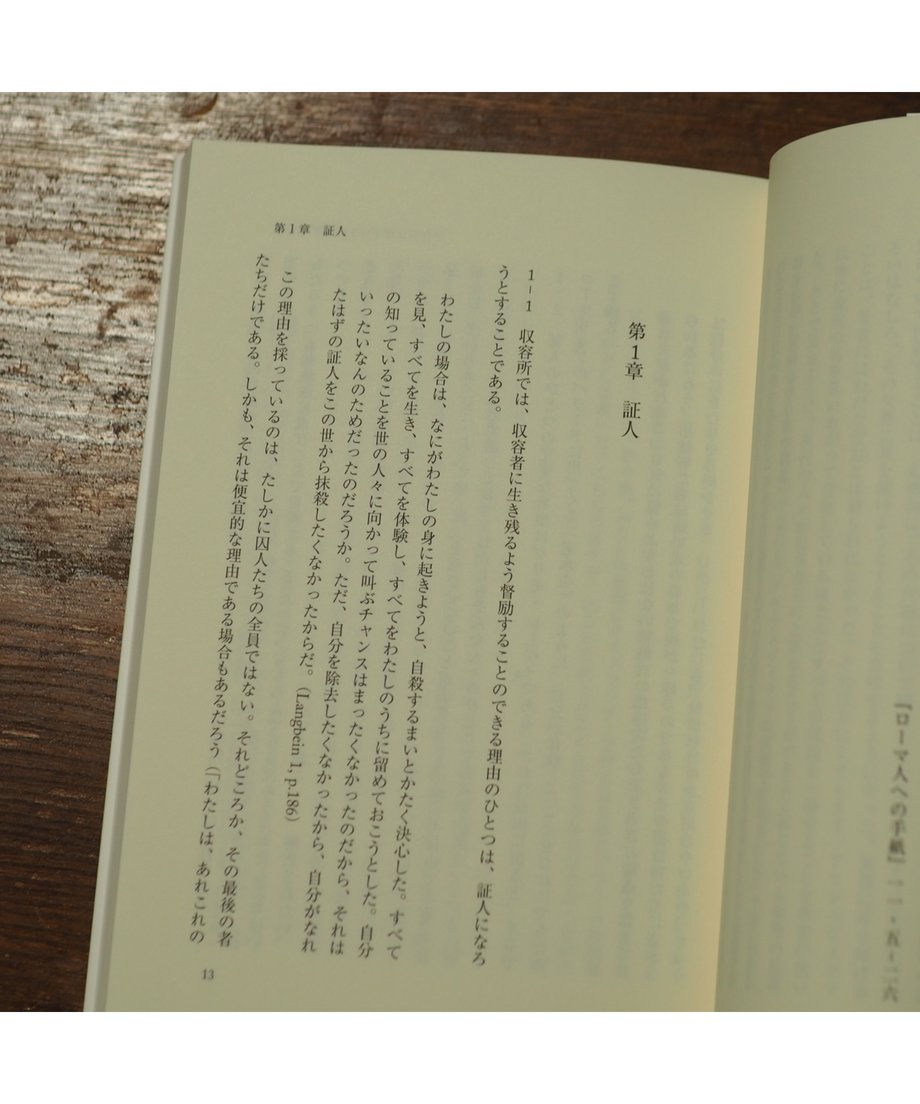 『ローマ人への手紙』一一・五-二六
第1章　証人
第1章　証人
1-1　収容所では、収容者に生き残るよう督励することのできる理由のひとつは、証人になろ
うとすることである。
わたしの場合は、なにがわたしの身に起きようと、自殺するまいとかたく決心した。すべて
を見、すべてを生き、すべてを体験し、すべてをわたしのうちに留めておこうとした。自分
の知っていることを世の人々に向かって叫ぶチャンスはまったくなかったのだから、それは
いったいなんのためだったのだろうか。ただ、自分を除去したくなかったから、自分がなれ
たはずの証人をこの世から抹殺したくなかったからだ。（Langbein 1, p.186）
この理由を採っているのは、たしかに囚人たちの全員ではない。それどころか、その最後の者
たちだけである。しかも、それは便宜的な理由である場合もあるだろう（「わたしは、あれこれの
13